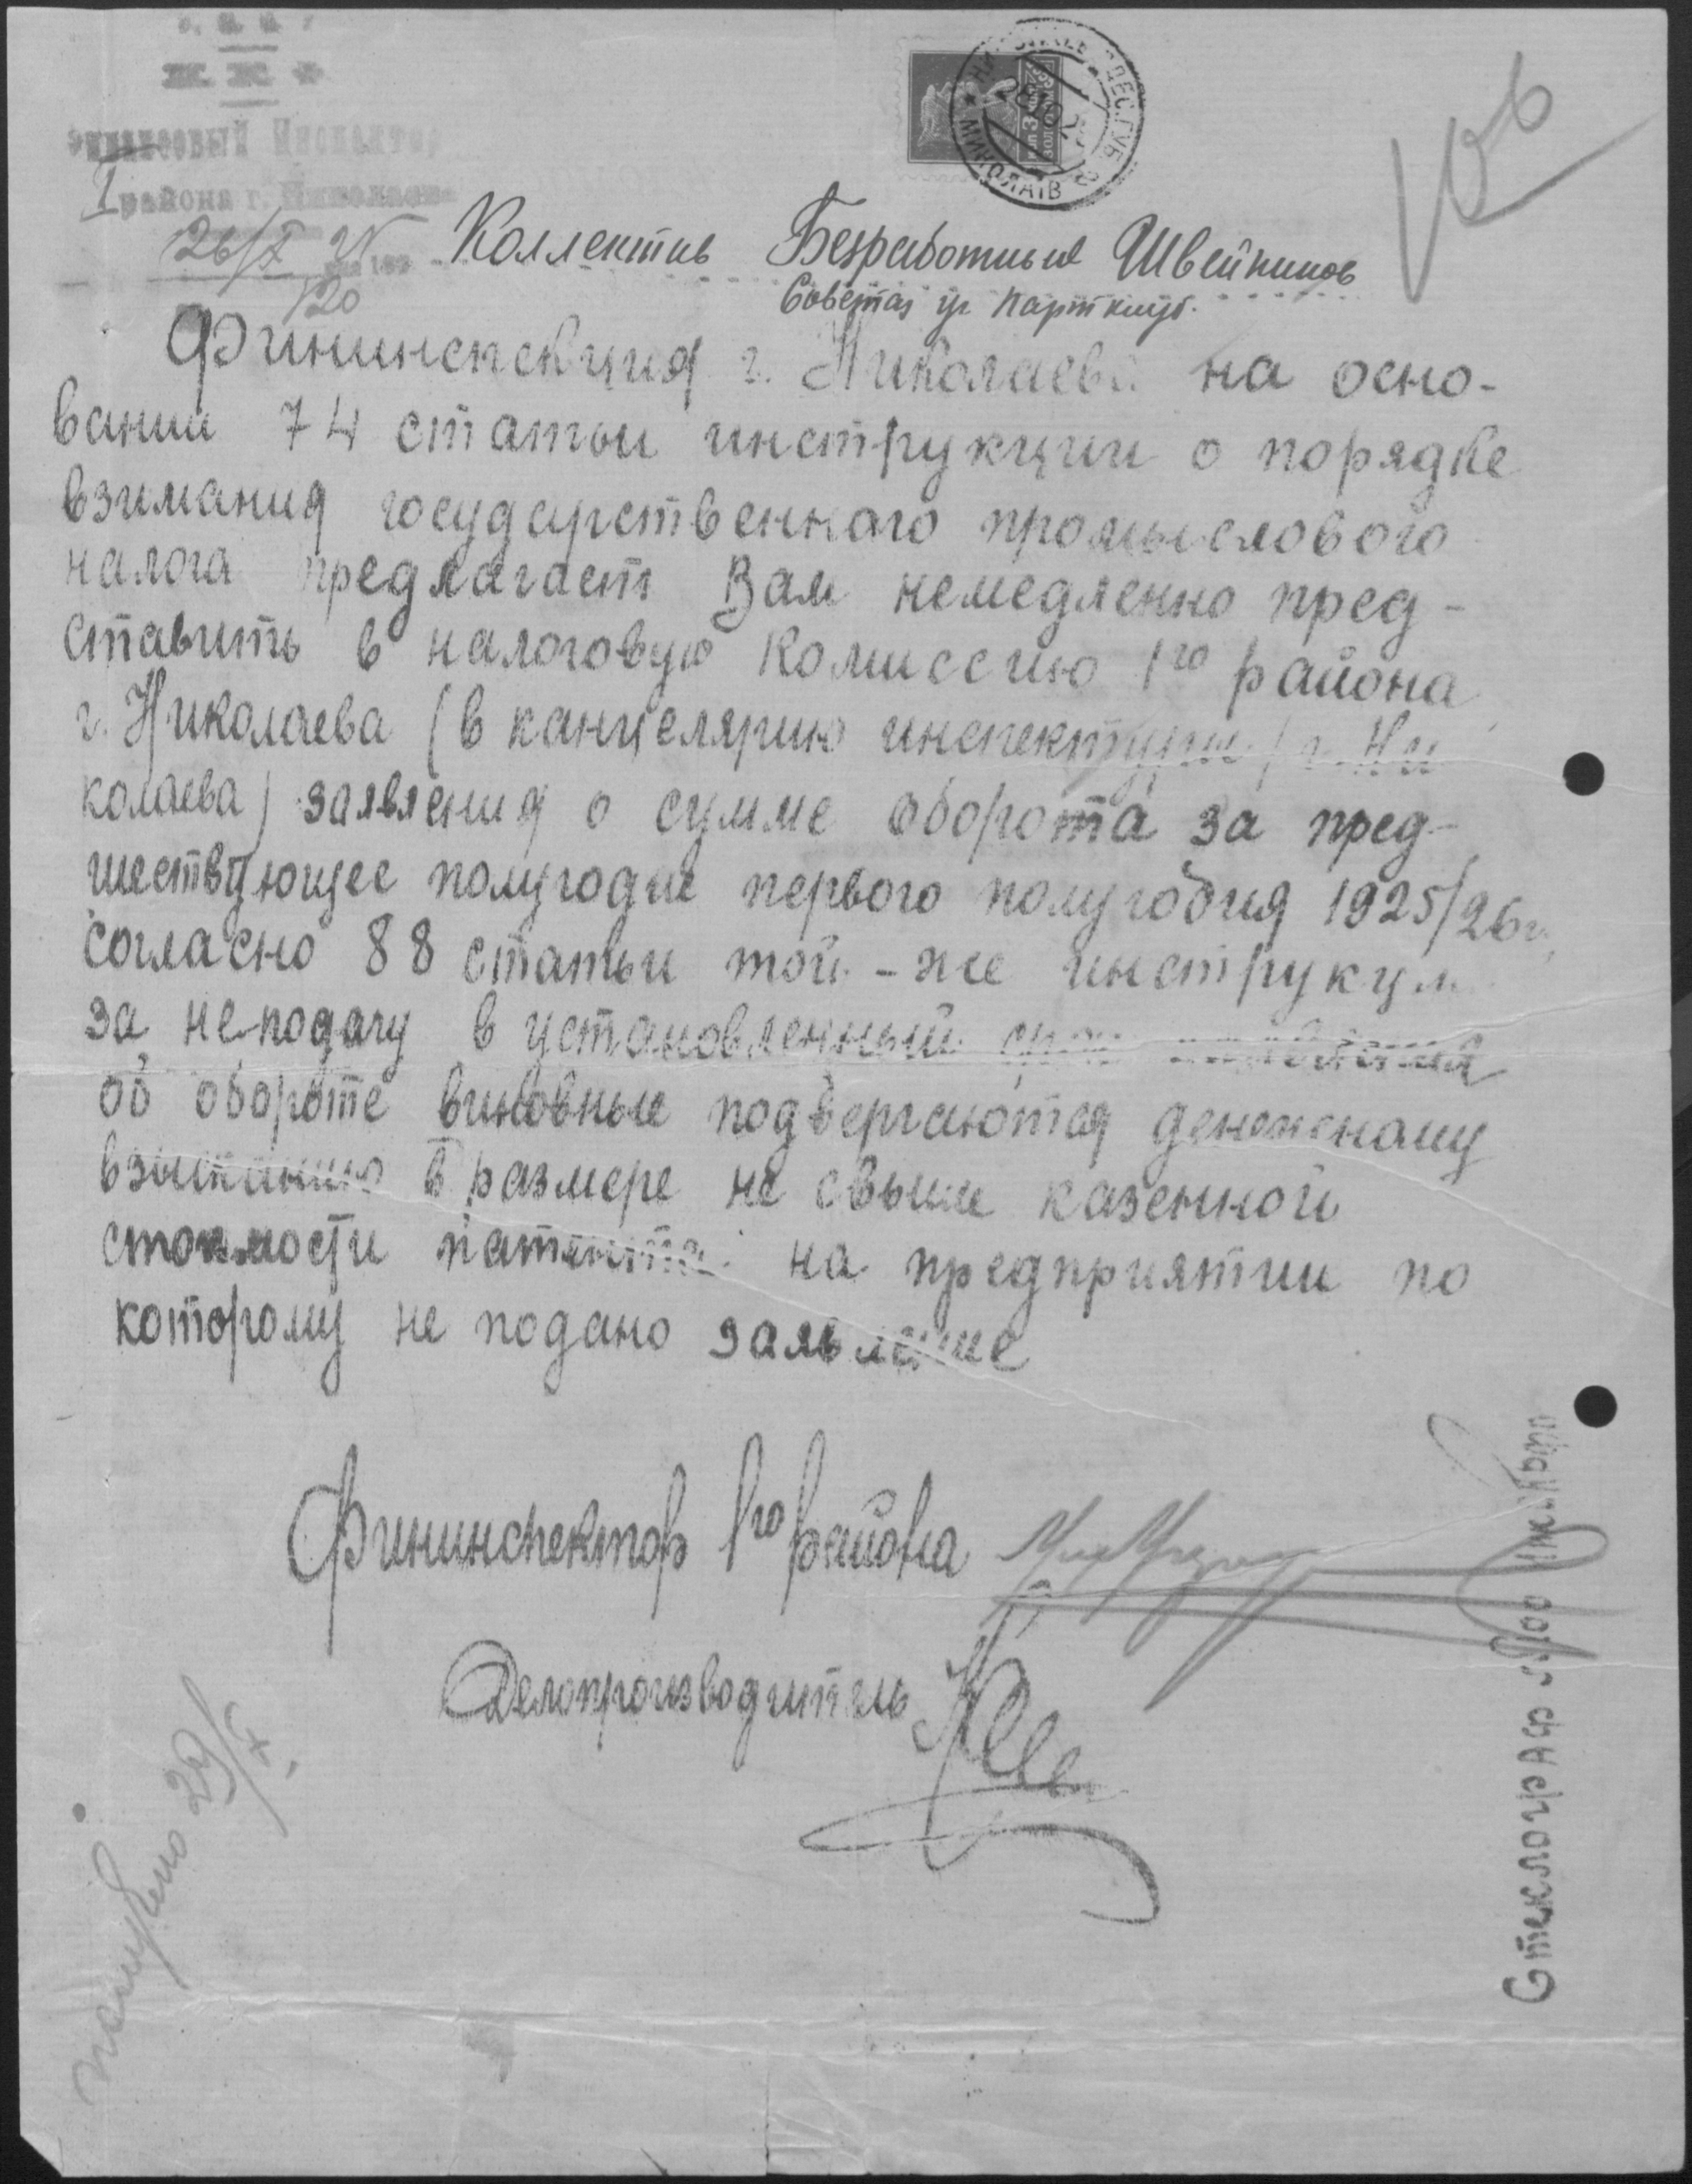 Финансовый Инспектор
I района г. Николаева
26/X
120
Коллектив Безработных Швейников
Фининспекция г. Николаева на осно-
вании 74 статьи инструкции о порядке
взимания государственного промыслового
налога предлагает Вам немедленно пред-
ставить в налоговую Комиссию 1го района
г. Николаева (в канцелярию инспектуры г. Ни
колаева) заявления о сумме оборота за пред-
шествующее полугодие первого полугодия 1925/26 г.
согласно 88 статьи той-же инструкции
за неподачу в установленный срок заявления
об обороте виновные подвергаются денежному
взысканию в размере не свыше казенной
стоимости патента на предприятии по
которому не подано заявление
Фининспектор 1го района
Делопроизводитель
получено 29/X
Стеклограф
МИКОЛАЇВ